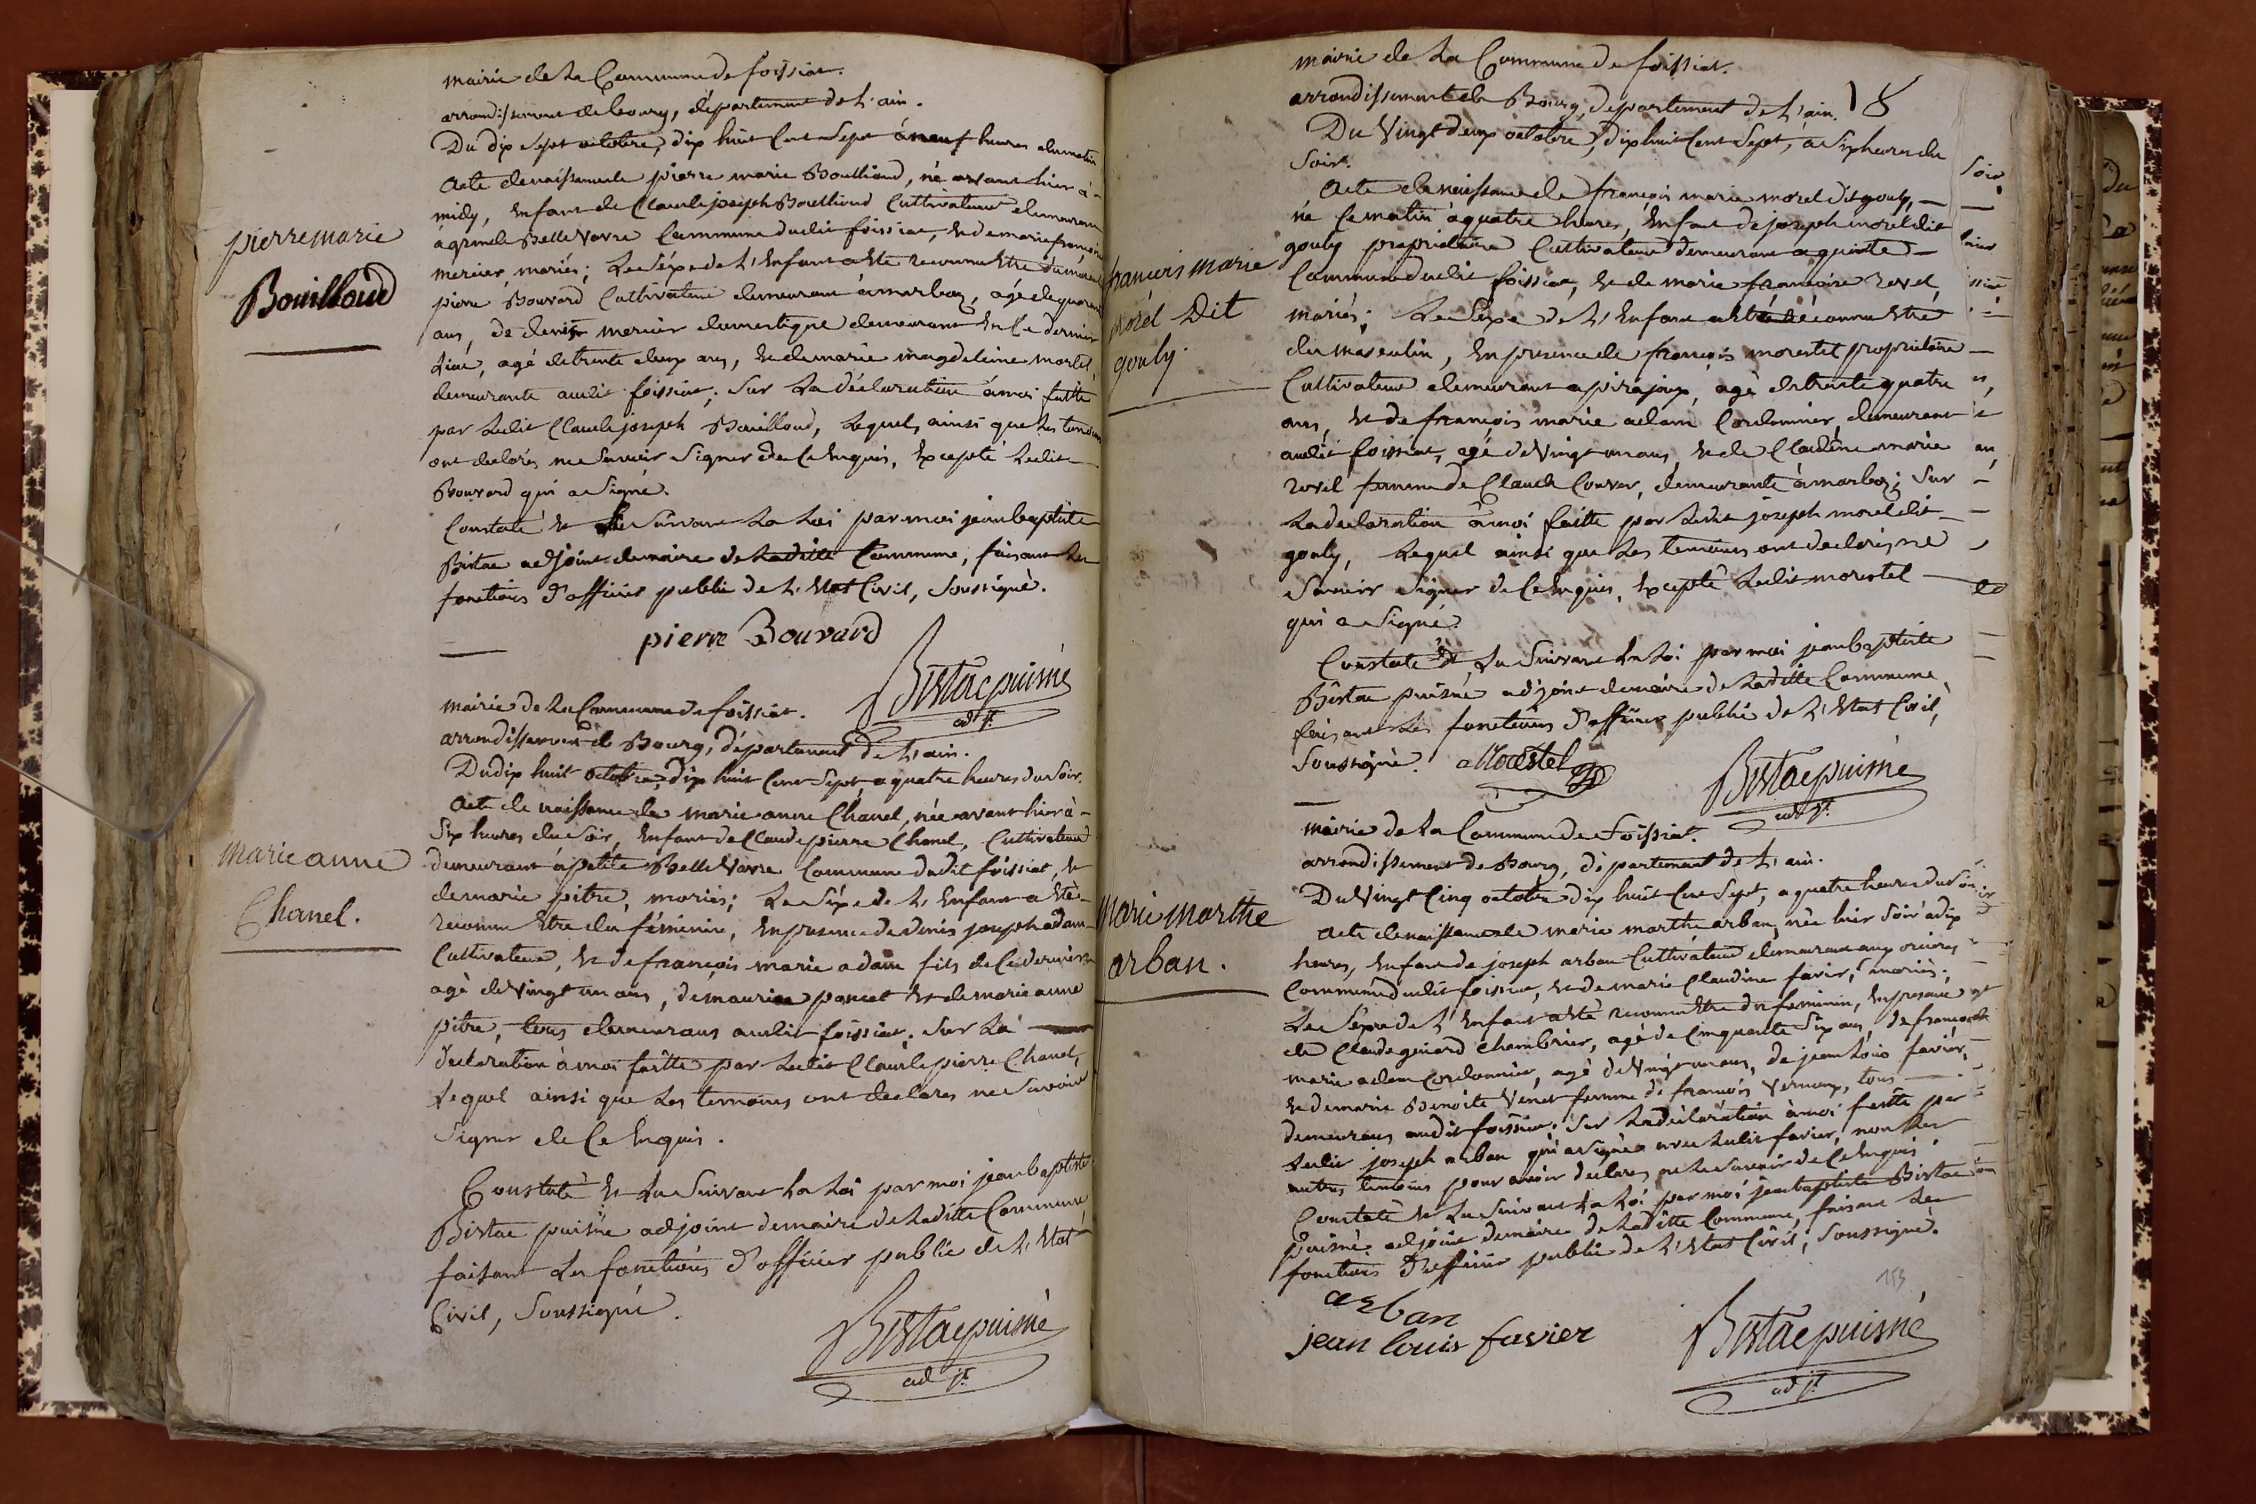 mairie de la Commune de foissiat.
arrondissement de bourg, département de l'ain.
Du dix sept octobre, dix huit Cent Sept à neuf heures du matin
acte de naissance de pierre marie Bouilloud, né avant hier à
midy, Enfant de Claude joseph Bouilloud Cultivateur demeurant
à grande Bellevavre Commune dudit foissiat, et de marie françoise
mercier, mariés; Le Séxe de l'Enfant a été reconnu être du
pierre Bouvard Cultivateur demeurant à marboz, agé de
ans, de denis mercier domestique demeurant En Ce dernier
Lieu, agé de trente deux ans, et de marie magdeleine morlet
demeurante audit foissiat; Sur La déclaration à moi faitte
par Ledit Claude joseph Bouilloud, Lequel, ainsi que Les temoins
ont declarés ne Savoir Signer de Ce Enquis, Excepté Ledit
Bouvard qui a Signé.
Constaté et Suivant La Loi par moi jean baptiste
Bistac adjoint de maire de Ladite Commune, faisant Les
fonctions d'officier public de l'Etat Civil, Soussigné.
pierre Bouvard
Bistac puisné
adjt.
pierre marie
Bouilloud
mairie de La Commune de foissiat.
arrondissement de Bourg, département de l'ain.
Du dix huit octobre, dix huit Cent Sept, a quatre heures du Soir.
acte de naissance de marie anne Chanel, née avant hier à
Six heures du Soir, Enfant de Claude pierre Chanel, Cultivateur
demeurant à petite Bellevavre Commune dudit foissiat, et
de marie pitre, mariés; Le Séxe de l'Enfant a été
reconnu Etre du féminin, En presence de denis joseph adam
Cultivateur, et de françois marie adam fils de Ce dernier
agé de Vingt un ans, de maurice poncet et de marie anne
pitre, tous demeurans audit foissiat. Sur La
declaration à moi faitte par Ledit Claude pierre Chanel,
Lequel ainsi que Les temoins ont declarés ne Savoir
Signer de Ce Enquis.
Constaté et Lu Suivant La Loi par moi jean baptiste
Bistac puisné adjoint de maire de Ladite Commune
faisant Les fonctions d'officier public de l'Etat
Civil, Soussigné.
Bistac puisné
adjt.
marie anne
Chanel.
mairie de La Commune de foissiat.
arrondissement de Bourg, departement de l'ain. 18
Du Vingt deux octobre, dix huit Cent Sept, à Six heures du
Soir.
acte de naissance de françois marie morel dit gouly,
né Ce matin à quatre heures, Enfant de joseph morel dit
gouly propriétaire Cultivateur demeurant a quinte
Commune dudit foissiat, et de marie françoise revel,
mariés; Le Séxe de l'Enfant a été réconnu Etre
du masculin, En presence de françois morestel proprietaire
Cultivateur demeurant a pirajoux, agé de trente quatre
ans, et de françois marie adam Cordonnier, demeurant
audit foissiat, agé de Vingt un ans, et de Claudine marie
revel femme de Claude Couvar, demeurante à marboz; Sur
La declaration à moi faitte par Ledit joseph morel dit
gouly, Lequel ainsi que Les temoins ont declarés ne
Savoir Signer de Ce Enquis, Excepté Ledit morestel
qui a Signé.
Constaté et Lu Suivant La Loi par moi jean baptiste
Bistac puisné adjoint de maire de Ladite Commune,
faisant Les fonctions d'officier public de l'Etat Civil,
Soussigné.
Morestel
Bistac puisné
adjt.
francois marie
morel Dit
gouly.
mairie de La Commune de Foissiat.
arrondissement de Bourg, département de l'ain.
Du Vingt Cinq octobre dix huit Cent Sept, a quatre heures du Soir
acte de naissance de marie marthe arban, née hier Soir à dix
heures, Enfant de joseph arban Cultivateur demeurant aux
Commune dudit foissiat, et de marie Claudine favier, mariés;
Le Séxe de l'Enfant a été reconnu Etre du feminin, En presence
de Claude genard Chambrier, agé de Cinquante Six ans, de francois
marie adam Cordonnier, agé de Vingt un ans, de jean Louis favier,
et de marie Benoite Venet femme de francois Vernoux, tous
demeurans audit foissiat. Sur La déclaration à moi faitte par
Ledit joseph arban qui a Signé avec Ledit favier, non Les
autres temoins pour avoir declarés ne Le Savoir de Ce Enquis.
Constaté et Lu Suivant La Loi par moi jean baptiste Bistac
puisné adjoint de maire de Ladite Commune, faisant Les
fonctions d'officier public de l'Etat Civil, Soussigné.
153
arban
jean louis favier
Bistac puisné
adjt.
Marie marthe
arban.